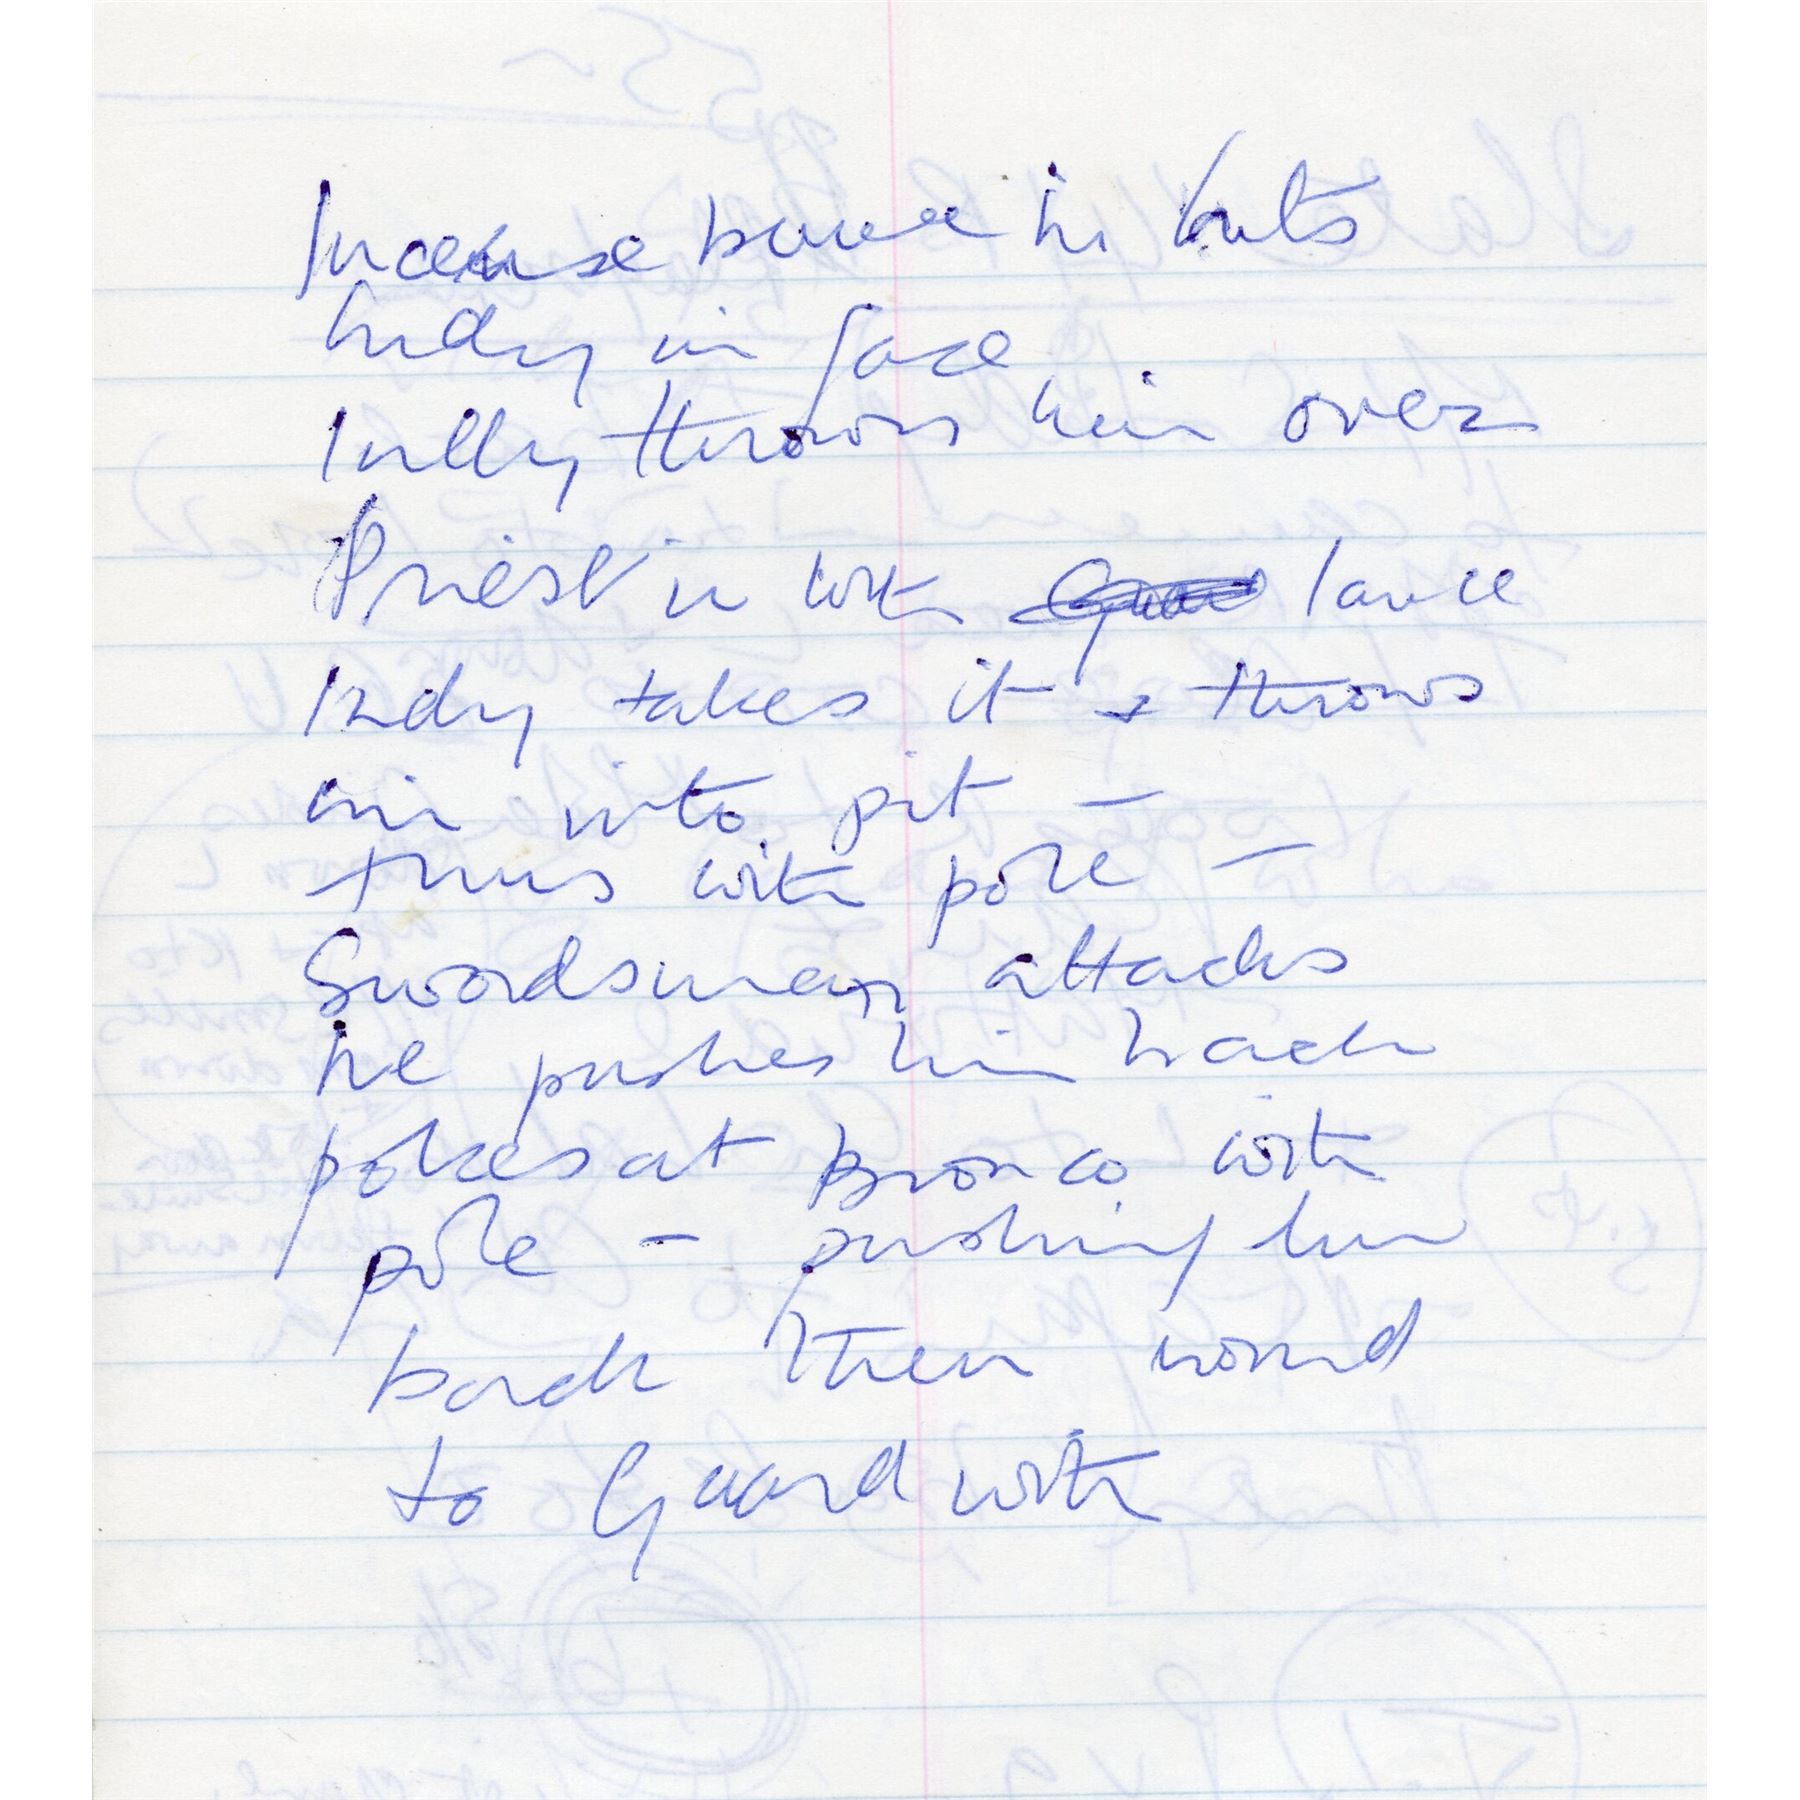 Incense in hits
Indy in face
throws him over
Priest in with lance
Indy takes it & throws
into pit —
turns with pole —
Swordsman attacks
he pushes him back
pokes at Bronco with
pole — pushing him
back then round
to Guard with